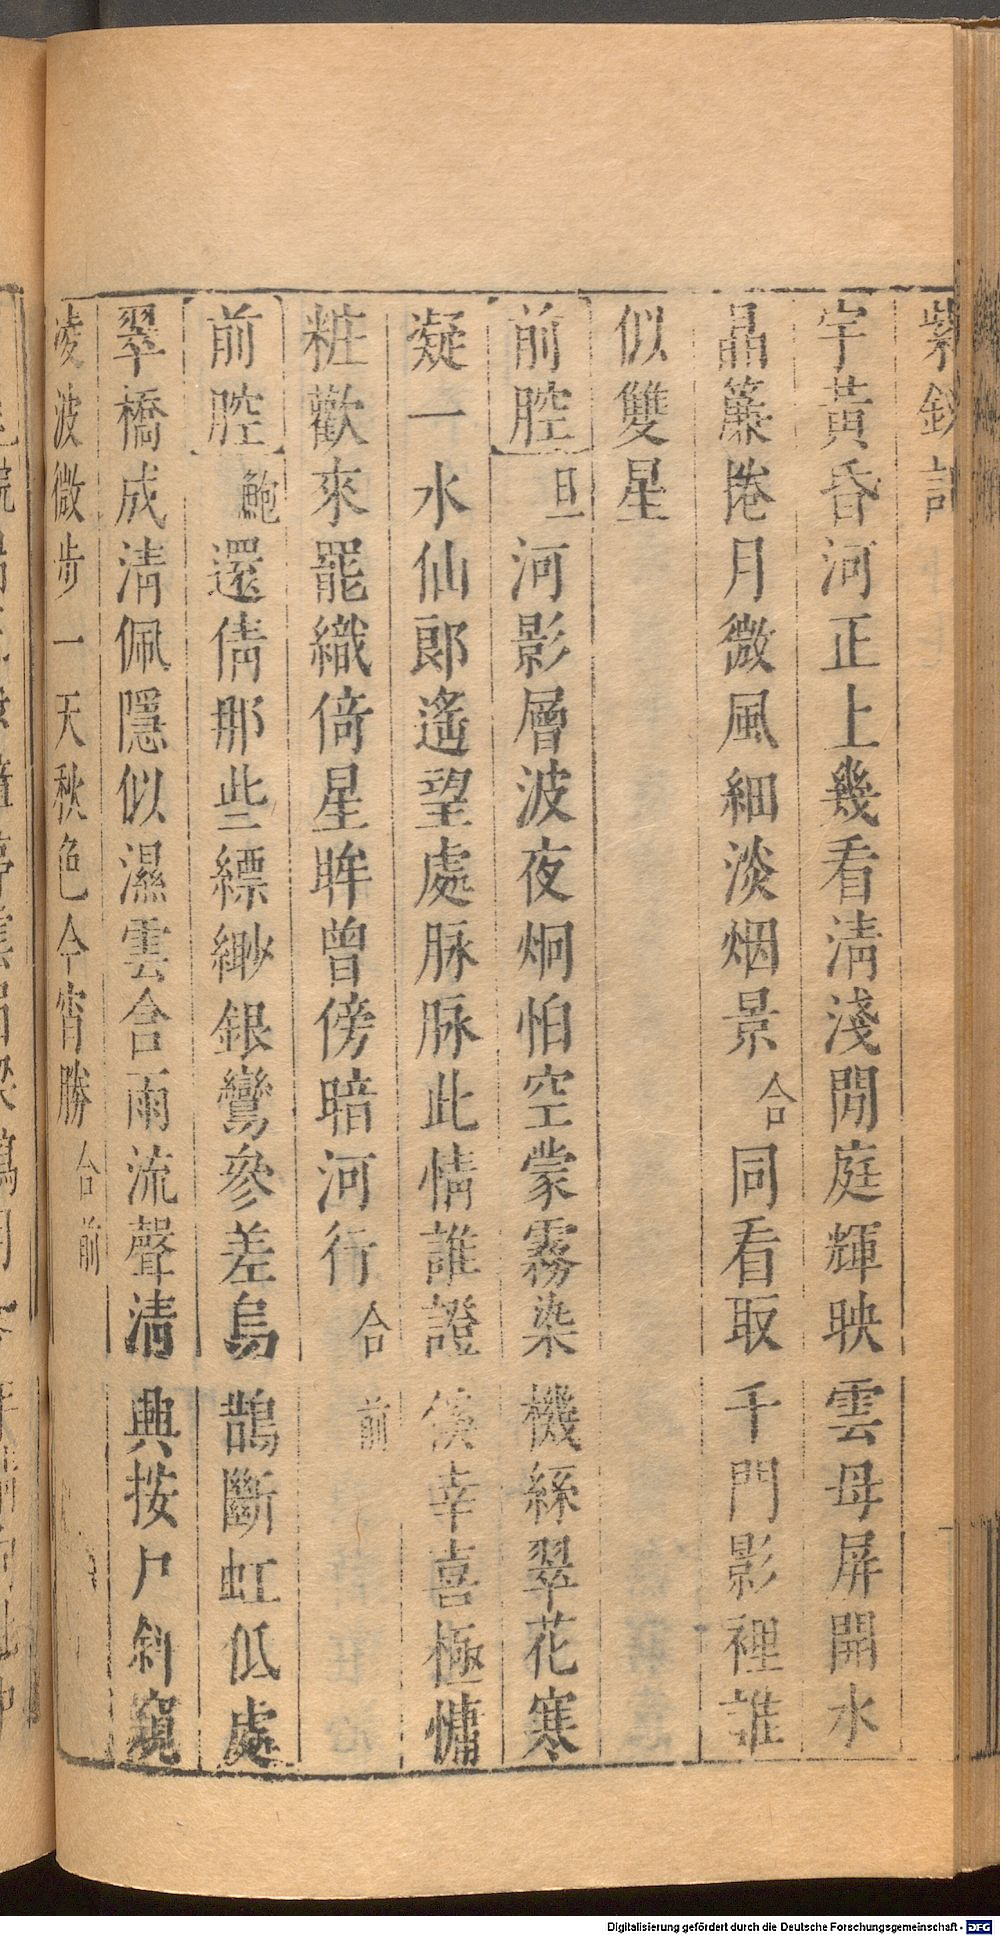 紫釵記
宇黃昏河正上幾看淸淺閒庭輝映雲母屏開水
晶簾捲月微風細淡烟景合同看取千門影裡誰
似雙星
前腔旦河影層波夜炯怕空蒙霧染機絲翠花寒
凝一水仙郞遙望處脉脉此情誰證傒幸喜極慵
粧歡來罷織倚星眸曾傍暗河行合前
前腔鮑還倩那些縹緲銀鸞參差烏鵲斷虹低處
翠橋成淸佩隱似濕雲含雨流聲淸興按户斜窺
凌波微步一天秋色今宵勝合前
Digitalisierung gefördert durch die Deutsche Forschungsgemeinschaft - DFG